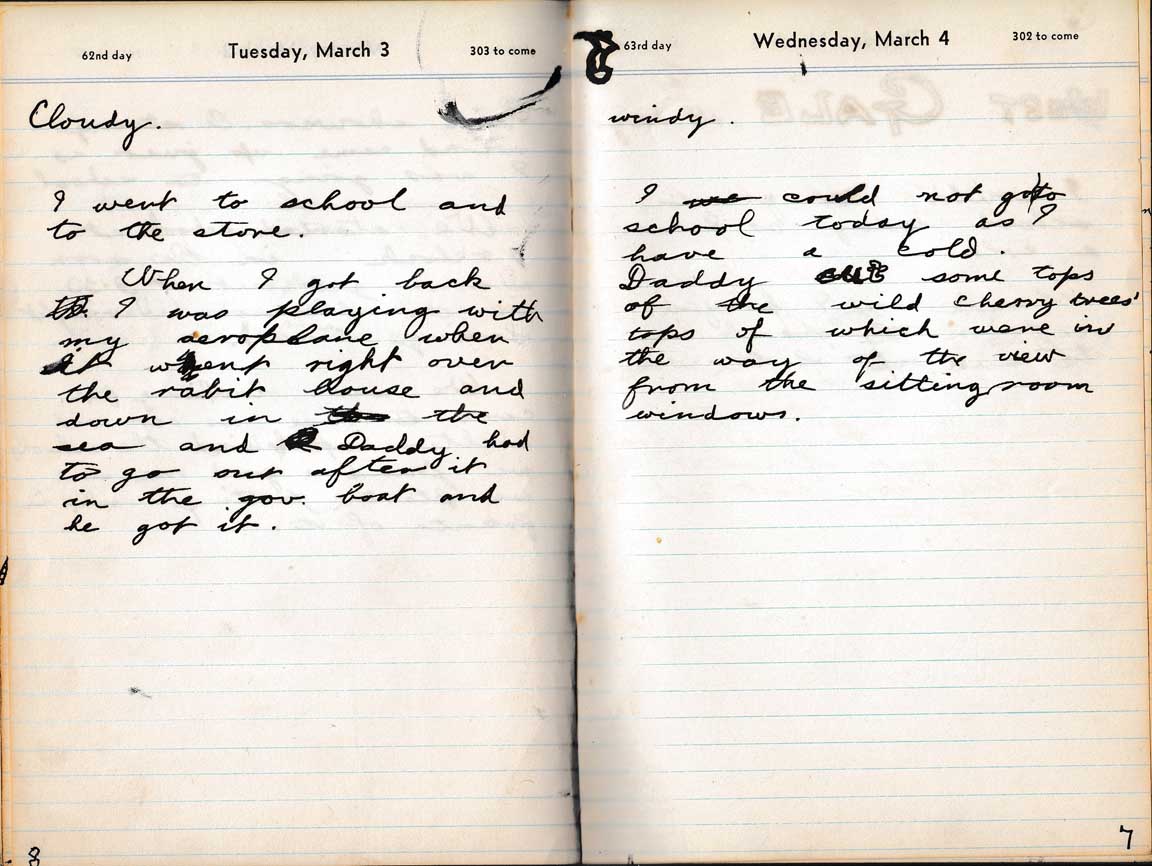 62nd day Tuesday, March 3 303 to come
Cloudy.
I went to school and
to the store.
When I got back
I was playing with
my aeroplane when
it went right over
the rabit house and
down in the
sea and Daddy had
to go out after it
in the gov. boat and
he got it.
8
63rd day Wednesday, March 4 302 to come
windy.
I could not go to
school today as I
have a cold.
Daddy cut some tops
of the wild cherry trees'
tops of which were in
the way of the view
from the sitting room
windows.
7